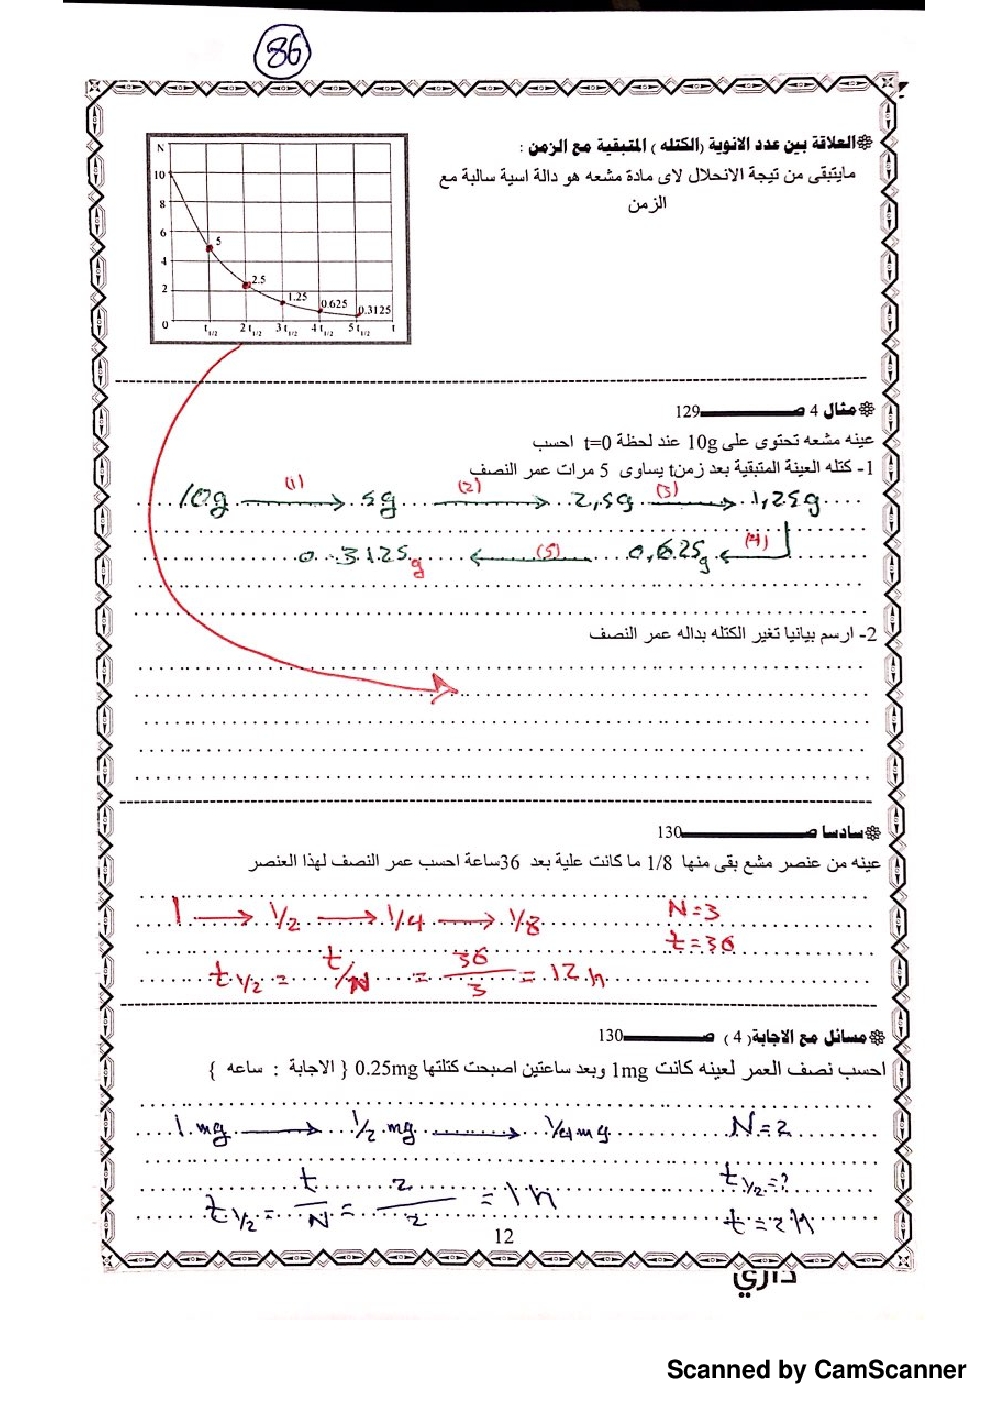 86
❉ العلاقة بين عدد الانوية (الكتله) المتبقية مع الزمن :
مايتبقى من نتيجة الانحلال لاى مادة مشعه هو دالة اسية سالبة مع
الزمن
N
10
8
6
4
2
0
5
2.5
1.25
0.625
0.3125
t1/2 2 t1/2 3 t1/2 4 t1/2 5 t1/2 t
❉ مثال 4 صــــــــــ 129
عينه مشعه تحتوى على 10g عند لحظة t=0 احسب
1- كتله العينة المتبقية بعد زمنt يساوى 5 مرات عمر النصف
10g (1)→ 5g (2)→ 2,5g (3)→ 1,25g
0.3125g ←(5) 0,625g ←(4)
2- ارسم بيانيا تغير الكتله بداله عمر النصف
❉ سادسا صــــــــــ 130
عينه من عنصر مشع بقى منها 1/8 ما كانت علية بعد 36ساعة احسب عمر النصف لهذا العنصر
1 → 1/2 → 1/4 → 1/8 N=3
t=36
t1/2 = t/N = 36/3 = 12 h
❉ مسائل مع الاجابة (4) صــــــــــ 130
احسب نصف العمر لعينه كانت 1mg وبعد ساعتين اصبحت كتلتها 0.25mg { الاجابة : ساعه }
1 mg → 1/2 mg → 1/4 mg N=2
t1/2=?
t1/2 = t/N = 2/2 = 1 h t=2h
12
Scanned by CamScanner